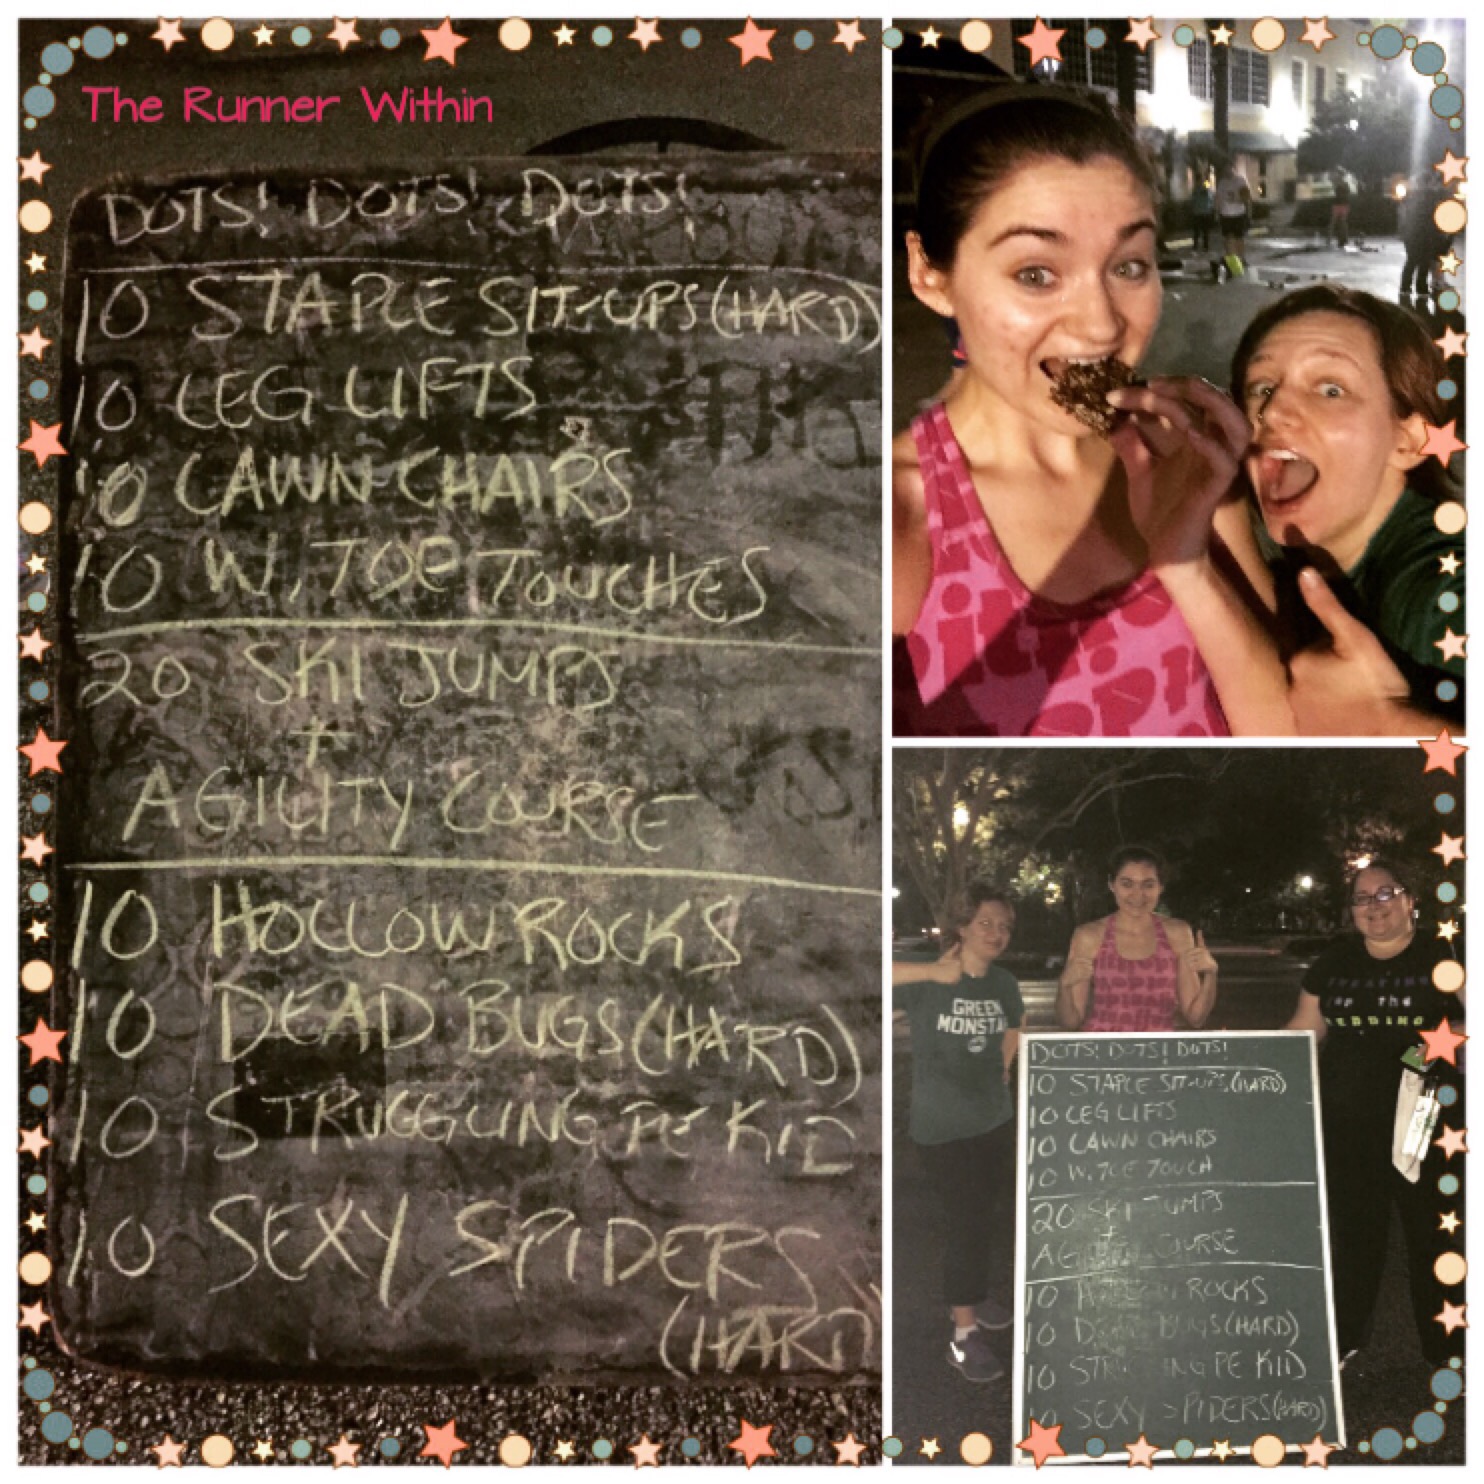 The Runner Within
DOTS! DOTS! DOTS!
10 STAPLE SIT-UPS (HARD)
10 LEG LIFTS
10 LAWN CHAIRS
10 W. TOE TOUCHES
20 SKI JUMPS
+
AGILITY COURSE
10 HOLLOW ROCKS
10 DEAD BUGS (HARD)
10 STRUGGLING PE KID
10 SEXY SPIDERS
(HARD)
GREEN
MONSTA
DOTS! DOTS! DOTS!
10 STAPLE SIT-UPS (HARD)
10 LEG LIFTS
10 LAWN CHAIRS
10 W. TOE TOUCH
20 SKI JUMPS
+
COURSE
10 ROCKS
10 BUGS (HARD)
10 PE KID
10 SEXY SPIDERS (HARD)